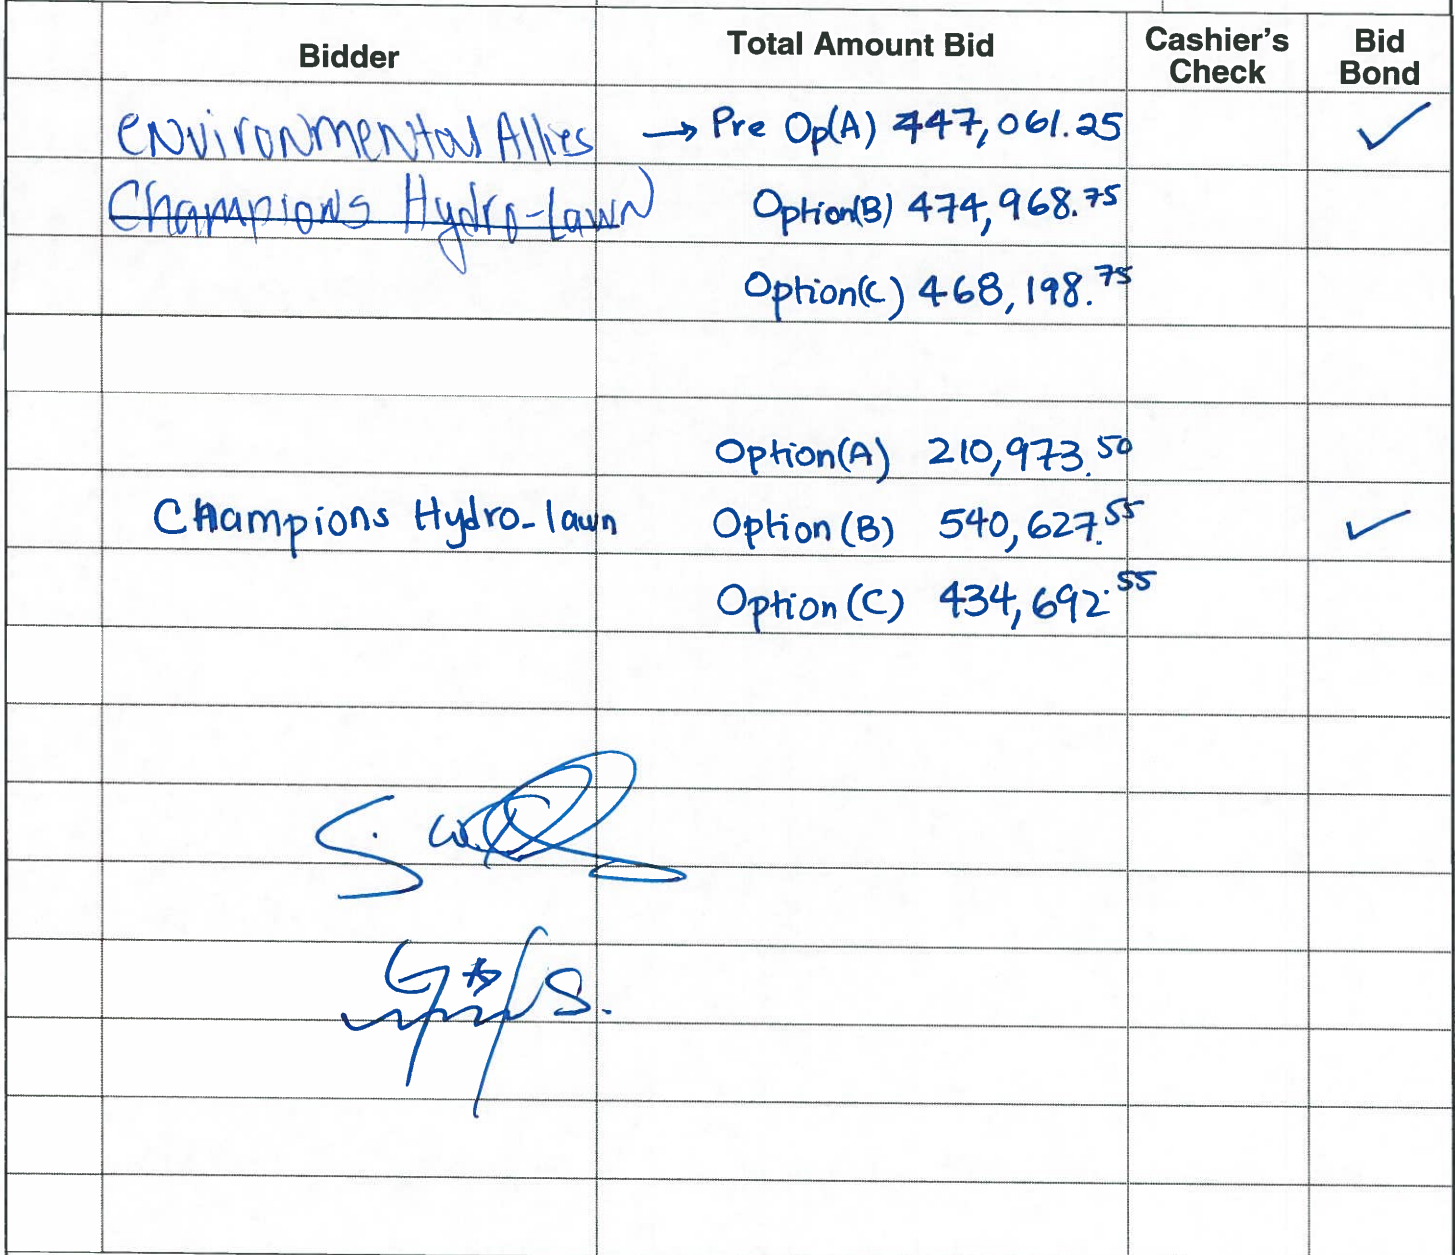 Bidder Total Amount Bid Cashier's Check Bid Bond
Environmental Allies → Pre Op(A) 447,061.25 ✓
Champions Hydro-lawn Option(B) 474,968.75
Option(C) 468,198.75
Option(A) 210,973.50
Champions Hydro-lawn Option (B) 540,627.55 ✓
Option (C) 434,692.55